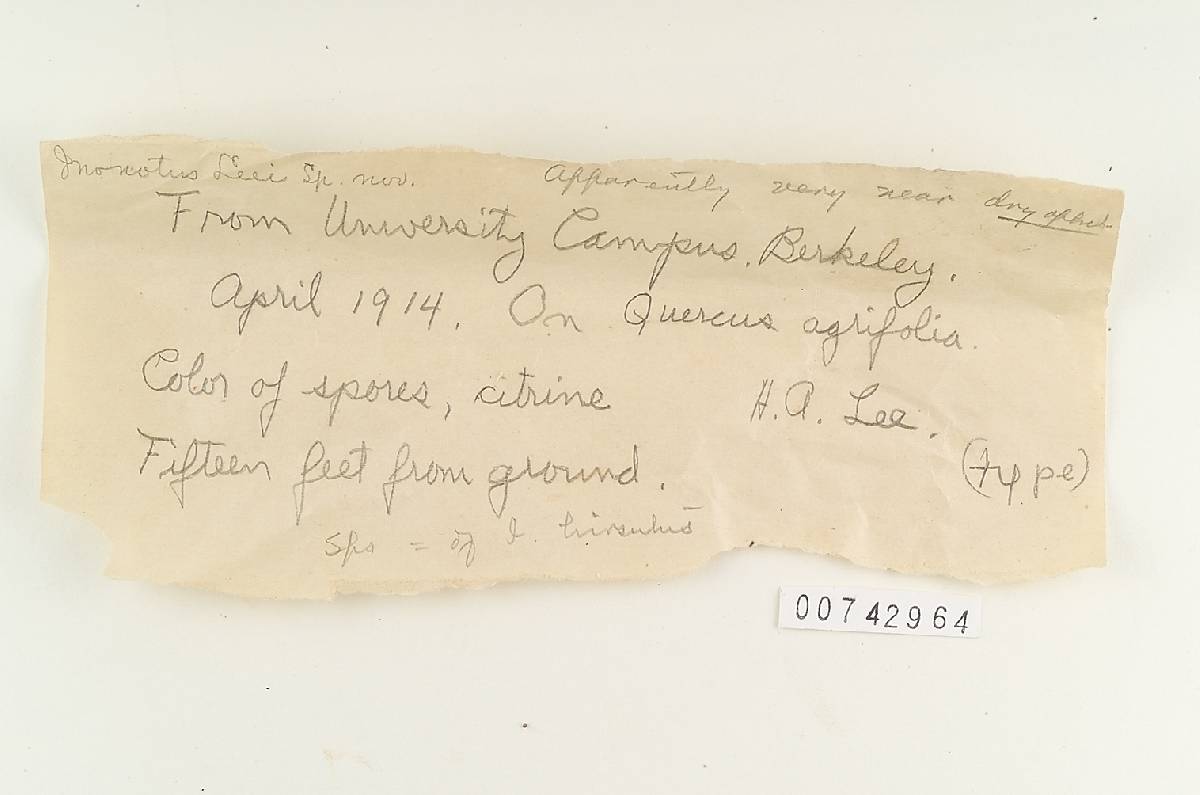 Inonotus Leei Sp. nov. Apparently very near dryophilus
From University Campus. Berkeley.
April 1914. On Quercus agrifolia.
Color of spores, citrine H. A. Lee.
Fifteen feet from ground. (type)
Sps = of I. hirsutus
00742964